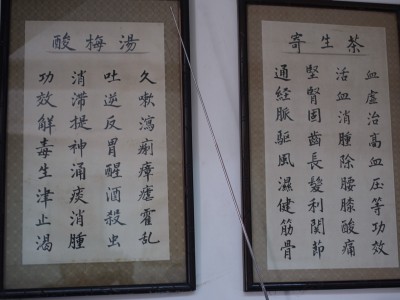 酸梅湯
功效解毒生津止渴
消滯提神涌痰消腫
吐逆反胃醒酒殺虫
久嗽瀉痢瘴瘧霍乱
寄生茶
通経脈驅風濕健筋骨
堅腎固齒長髮利関節
活血消腫除腰膝酸痛
血虛治高血压等功效